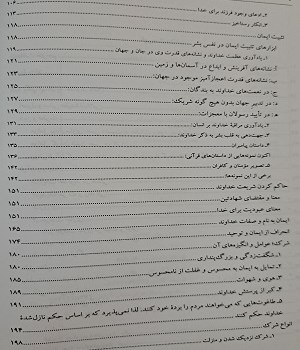 ۲. ادعای وجود فرزند برای خدا ۱۰۶
۳. انکار رستاخیز ۱۱۳
تثبیت ایمان ۱۱۸
ابزارهای تثبیت ایمان در نفس بشر ۱۱۸
۱. یادآوری عظمت خداوند و نشانه‌های قدرت وی در جان و جهان ۱۱۹
أ: نشانه‌های آفرینش و ابداع در آسمان‌ها و زمین ۱۲۱
ب: نشانه‌های قدرت اعجازآمیز موجود در جهان: ۱۲۳
ج: در نعمت‌های خداوند به بندگان: ۱۲۵
د: در تدبیر جهان بدون هیچ گونه شریک: ۱۲۷
ه: در تأیید رسولان با معجزات: ۱۲۹
۲. یادآوری مراقبهٔ خداوند بر انسان: ۱۳۱
۳. جهت‌دهی به قلب بشر به ذکر خداوند: ۱۳۳
۴. داستان پیامبران ۱۳۵
اکنون نمونه‌هایی از داستان‌های قرآنی:
۵. تصویر مؤمنان و کافران ۱۴۲
برخی از این نمونه‌ها
حاکم کردن شریعت خداوند ۱۵۱
معنا و مقتضای شهادتین ۱۵۱
معنای عبودیت برای خدا ۱۵۱
ایمان به نام و صفات خداوند ۱۶۵
انحراف از ایمان و توحید ۱۷۴
شرک؛ عوامل و انگیزه‌های آن ۱۸۰
۱. شگفت‌زدگی و بزرگ‌پنداری ۱۸۰
۲. تمایل به ایمان به محسوس و غفلت از نامحسوس ۱۸۵
۳. هوی و شهوات ۱۸۹
۴. کبر از پرستش خداوند ۱۹۱
۵. طاغوت‌هایی که می‌خواهند مردم را بردهٔ خود کنند، لذا نمی‌پذیرد که بر اساس حکم نازل‌شدهٔ
خداوند حکم کنند ۱۹۴
انواع شرک
۱. شرک نزدیک شدن و منزلت ۱۹۸